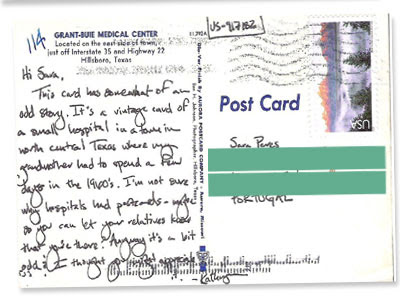 114
GRANT-BUIE MEDICAL CENTER
Located on the east side of town,
just off Interstate 35 and Highway 22
Hillsboro, Texas
US-917182
Hi Sara,
This card has somewhat of an
odd story. It's a vintage card of
a small hospital in a town in
north central Texas where my
grandmother had to spend a few
days in the 1960's. I'm not sure
why hospitals had postcards - maybe
so you can let your relatives know
that you're there? Anyway it's a bit
odd & I thought you might appreciate
it.
- Kathryn
by AURORA POSTCARD COMPANY
Aurora, Missouri
Photographer, Hillsboro, Texas
Post Card
USA
Sara Peres
PORTUGAL